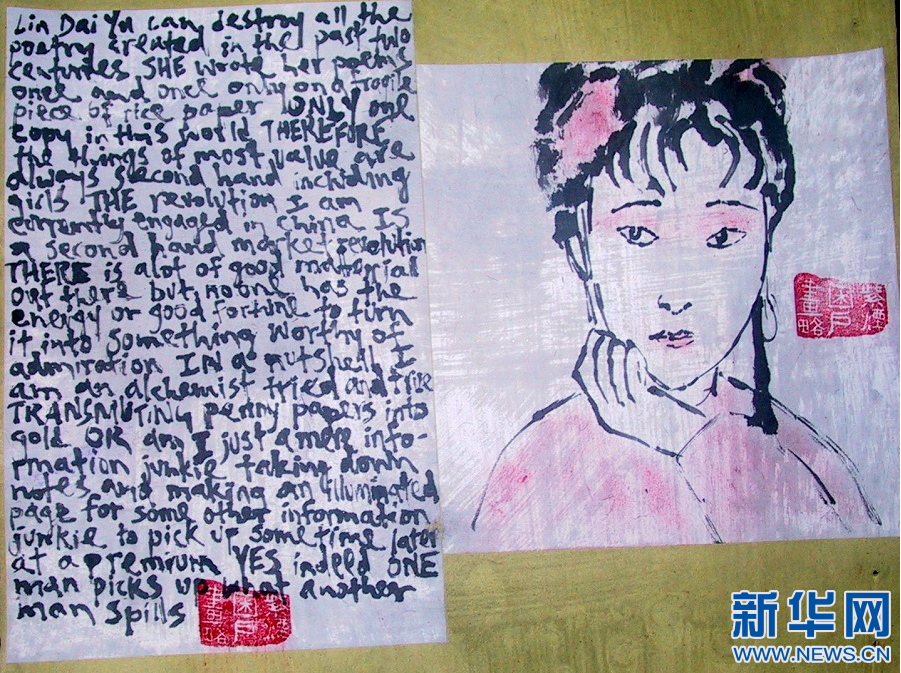 Lin Dai Yu can destroy all the
poetry created in the past two
centuries SHE wrote her poems
once and once only on a fragile
piece of rice paper ONLY one
copy in this world THEREFORE
the things of most value are
always second hand including
girls THE revolution I am
currently engaged in china IS
a second hand market revolution
THERE is alot of good material
out there but no one has the
energy or good fortune to turn
it into something worthy of
admiration IN a nutshell I
am an alchemist tried and true
TRANSMUTING penny papers into
gold OR am I just a mere info-
rmation junkie taking down
notes and making an illuminated
page for some other information
junkie to pick up sometime later
at a premium YES indeed ONE
man picks up what another
man spills
新华网
WWW.NEWS.CN